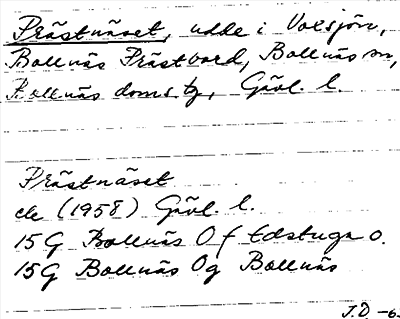 Prästnäset, udde i Voxsjön,
Bollnäs Prästbord, Bollnäs sn,
Bollnäs doms. tg, Gävl. l.
Prästnäset
ek (1958) Gävl. l.
15G Bollnäs Of Edstuga o.
15G Bollnäs Og Bollnäs
J.D. -63